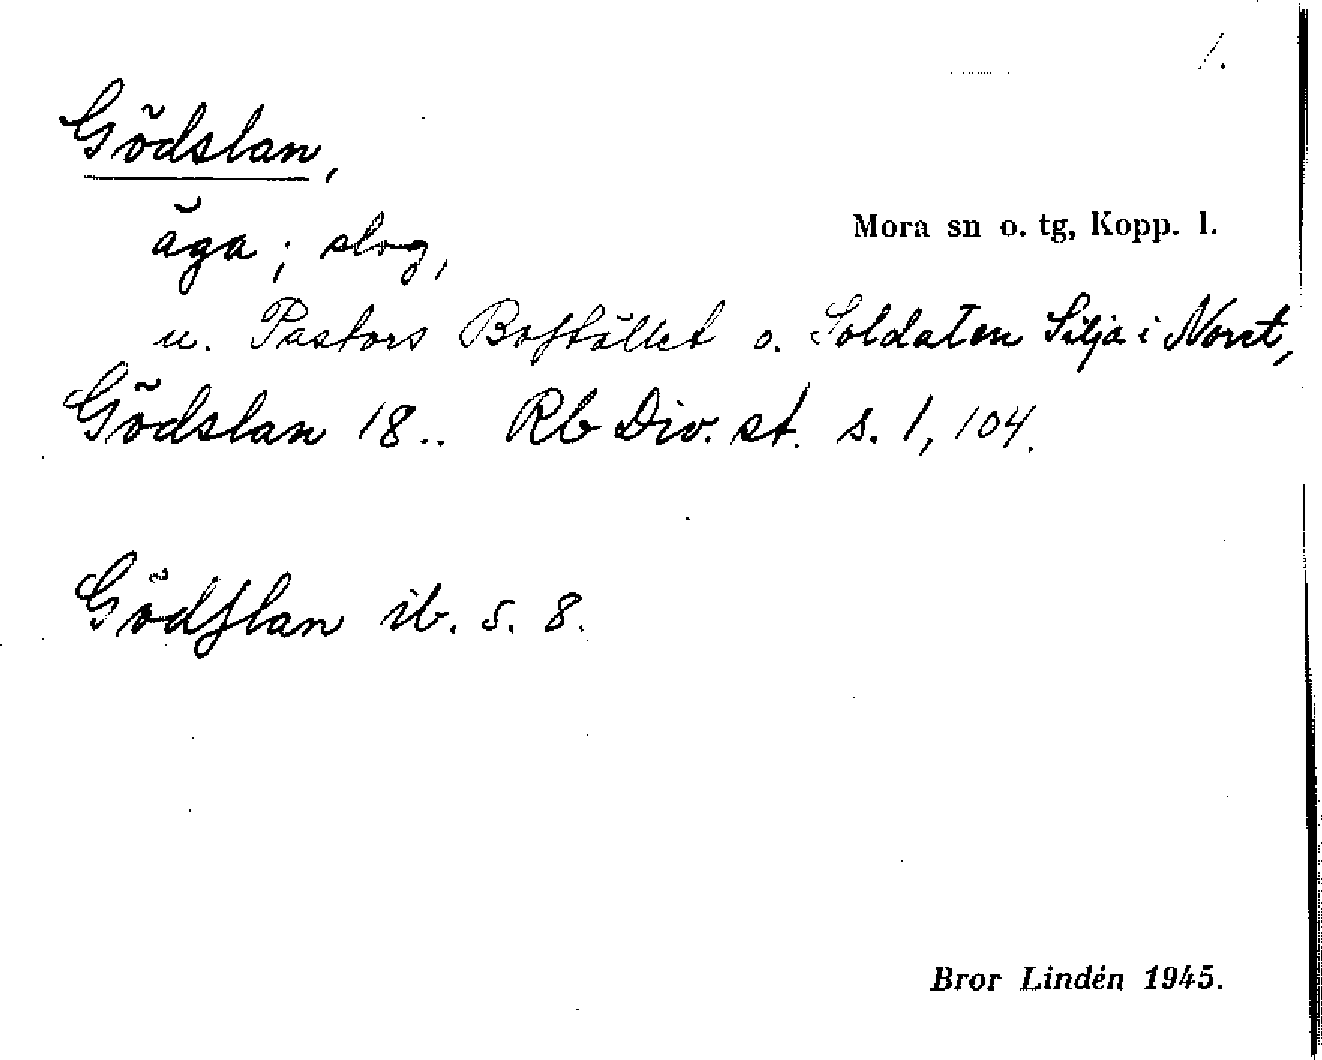 1.
Gödslan,
äga; slog,
Mora sn o. tg, Kopp. l.
u. Pastors Boställlet o. Soldaten Silja i Noret,
Gödslan 18.. Rb Div. st. s. 1, 104.
Gödſlan ib. s. 8.
Bror Lindén 1945.